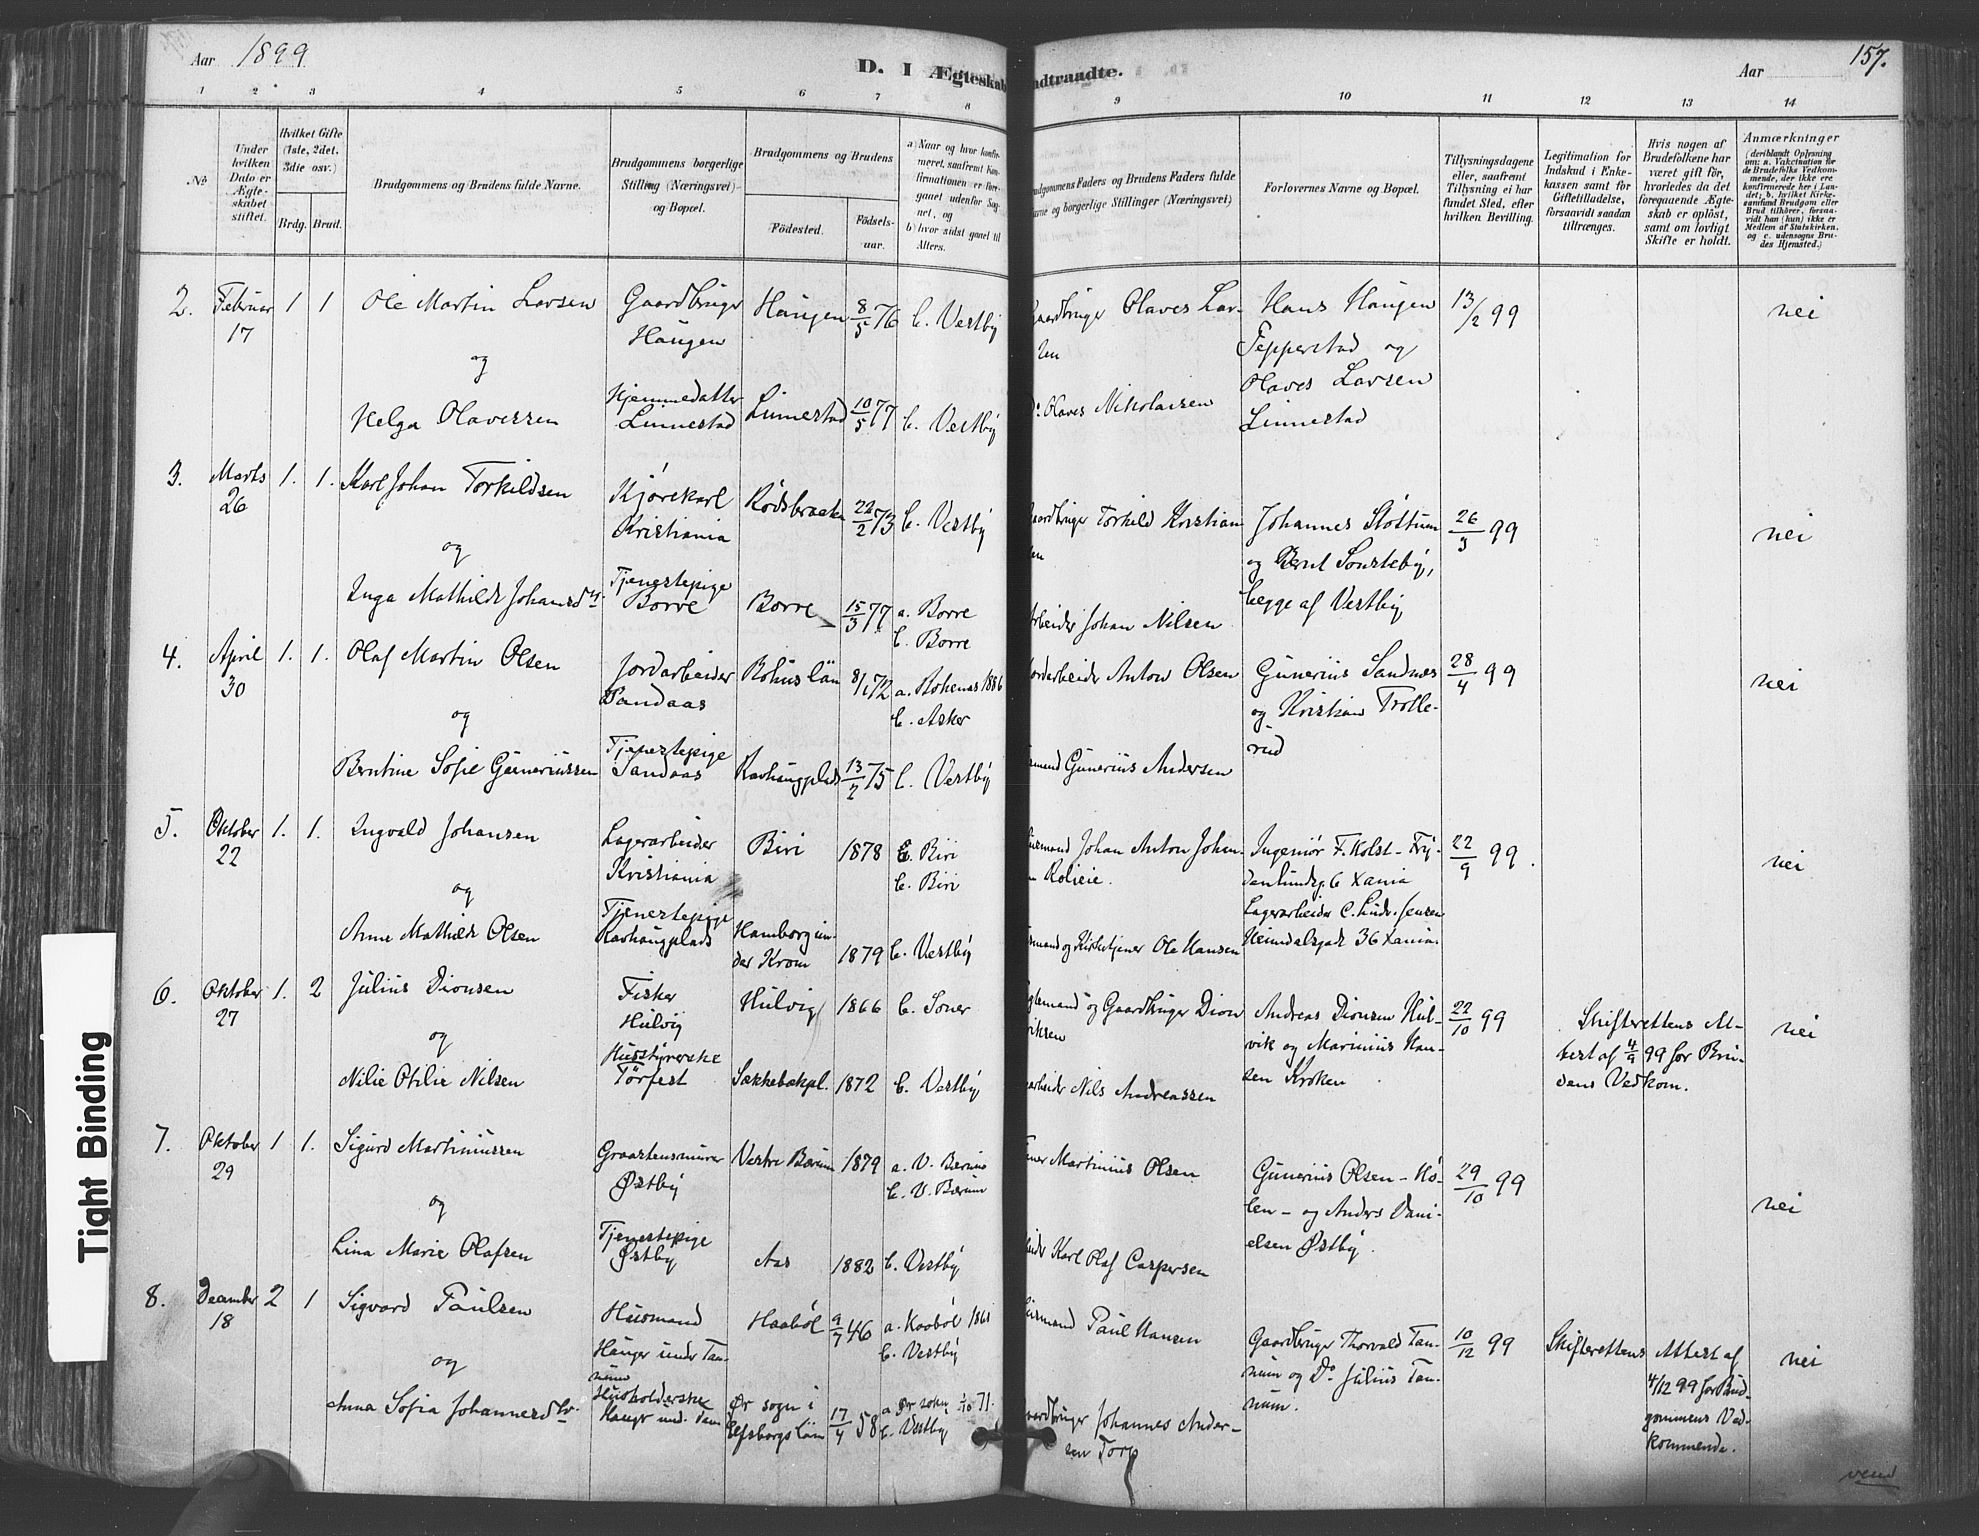 Aar 1899
D. I Ægteskab
ndtraadte.
Aar
157.
1 2 3 4 5 6 7 8 9 10 11 12 13 14
No
Under hvilken Dato er Ægteskabet stiftet.
Hvilket Gifte (1ste, 2det, 3die osv.)
Brdg. Brud.
Brudgommens og Brudens fulde Navne.
Brudgommens borgerlige Stilling (Næringsvei) og Bopæl.
Brudgommens og Brudens
Fødested.
Fødselsaar.
a) Naar og hvor konfirmeret, saafremt Konfirmationen er foregaaet udenfor Sognet, og
b) hvor sidst gaaet til Alters.
udgommens Faders og Brudens Faders fulde
avne og borgerlige Stillinger (Næringsvei)
Forlovernes Navne og Bopæl.
Tillysningsdagene eller, saafremt Tillysning ei har fundet Sted, efter hvilken Bevilling.
Legitimation for Indskud i Enkekassen samt for Giftetilladelse, forsaavidt saadan tiltrænges.
Hvis nogen af Brudefolkene har været gift før, hvorledes da det foregaaende Ægteskab er opløst, samt om lovligt Skifte er holdt.
Anmærkninger
(deriblandt Oplysning om: a. Vakcination for de Brudefolks Vedkommende, der ikke ere konfirmerede her i Landet; b. hvilket Kirkesamfund Brudgom eller Brud tilhører, forsaavidt han (hun) ikke er Medlem af Statskirken, og c. udensogns Brudes Hjemsted.)
2. Februar 17 1 1 Ole Martin Larsen Gaardbruger Haugen Haugen 8/5 76 b. Vestby
Gaardbruger Olaves Larsen
Hans Haugen
Tepperstad og
Olaves Larsen
Linnestad
13/2 99 nei
og
Helga Olavessen Hjemmedatter Linnestad Linnestad 10/5 77 b. Vestby
Do Olaves Nikolaisen
3. Marts 26 1. 1. Karl Johan Torkildsen Kjørekarl Kristiania Rødsbraaten 22/2 73 b. Vestby
aardbruger Torkild Kristian
Johannes Støttum
og Bernt Sonsteby,
begge af Vestby
26/3 99 nei
og
Inga Mathilde Johansdtr Tjenestepige Borre Borre 15/3 77 a. Borre
b. Borre
Arbeider Johan Nilsen
4. April 30 1. 1. Olaf Martin Olsen Jordarbeider Sandaas Bohus län 8/1 72 a. Bohenas 1886
b. Asker
ordarbeider Anton Olsen
Gunerius Sandnes
og Kristian Trollerud
28/4 99 nei
og
Berntine Sofie Guneriussen Tjenestepige Sandaas Ravhaugplads 13/2 75 b. Vestby
smand Gunerius Andersen
5. Oktober 22 1. 1. Ingvald Johansen Lagerarbeider Kristiania Biri 1878 b. Biri
b. Biri
usmand Johan Anton Johan-
Ingeniør F. Holst - Frydenlundsg. 6 Xania
Lagerarbeider C. Ludv. Jensen
Heimdalsgade 36 Xania.
22/9 99. nei
og
Anne Mathilde Olsen Tjenestepige Ravhaugplads Hamborg under Krom 1879 b. Vestby
smand og Kirketjener Ole Hansen
6. Oktober 27 1. 2 Julius Dionsen Fisker Hulvig Hulvig 1866 b. Soner
gtemand og Gaardbruger Dion
riksen
Andreas Dionsen Hulvik og Marinius Hansen Kroken
22/10 99
Skifterettens Attest af 4/9 99 for Brudens Vedkom.
nei
og
Nilie Otilie Nilsen Husstyrerske Tørfest Sækkebækpl. 1872 b. Vestby
arbeider Nils Andreassen
7. Oktober 29 1 1. Sigurd Martiniussen Graastensmurer Østby Vestre Bærum 1879 a. V. Bærum
b. V. Bærum
ner Martinius Olsen
Gunerius Olsen - Hølen - og Anders Danielsen Østby.
29/10 99
nei
og
Lina Marie Olafsen Tjenestepige Østby Aas 1882 b. Vestby
eider Karl Olaf Caspersen
8. December 18 2 1 Sigvard Paulsen Husmand
Hauger under Tannum
Haabøl 9/7 46 a. Haabøl 1861
b. Vestby
usmand Paul Hansen
Gaardbruger Thorvald Tannum og Do Julius Tannum.
10/12 99
Skifterettens Attest af
4/12 99 for Brudgommens Vedkommende.
nei
og
Anna Sofia Johannesdtr Husholderske
Hauger und. Tan
Ør sogn i Elfsborgs län 17/4 58 a. Ør sokn 1/10 71.
b. Vestby
aardbruger Johannes Andersen Torp
vend
Tight Binding